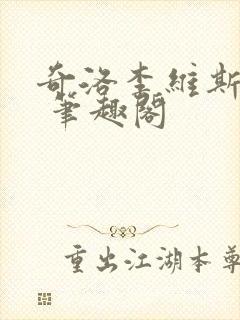 奇洛李維斯
筆趣閣
重出江湖本尊